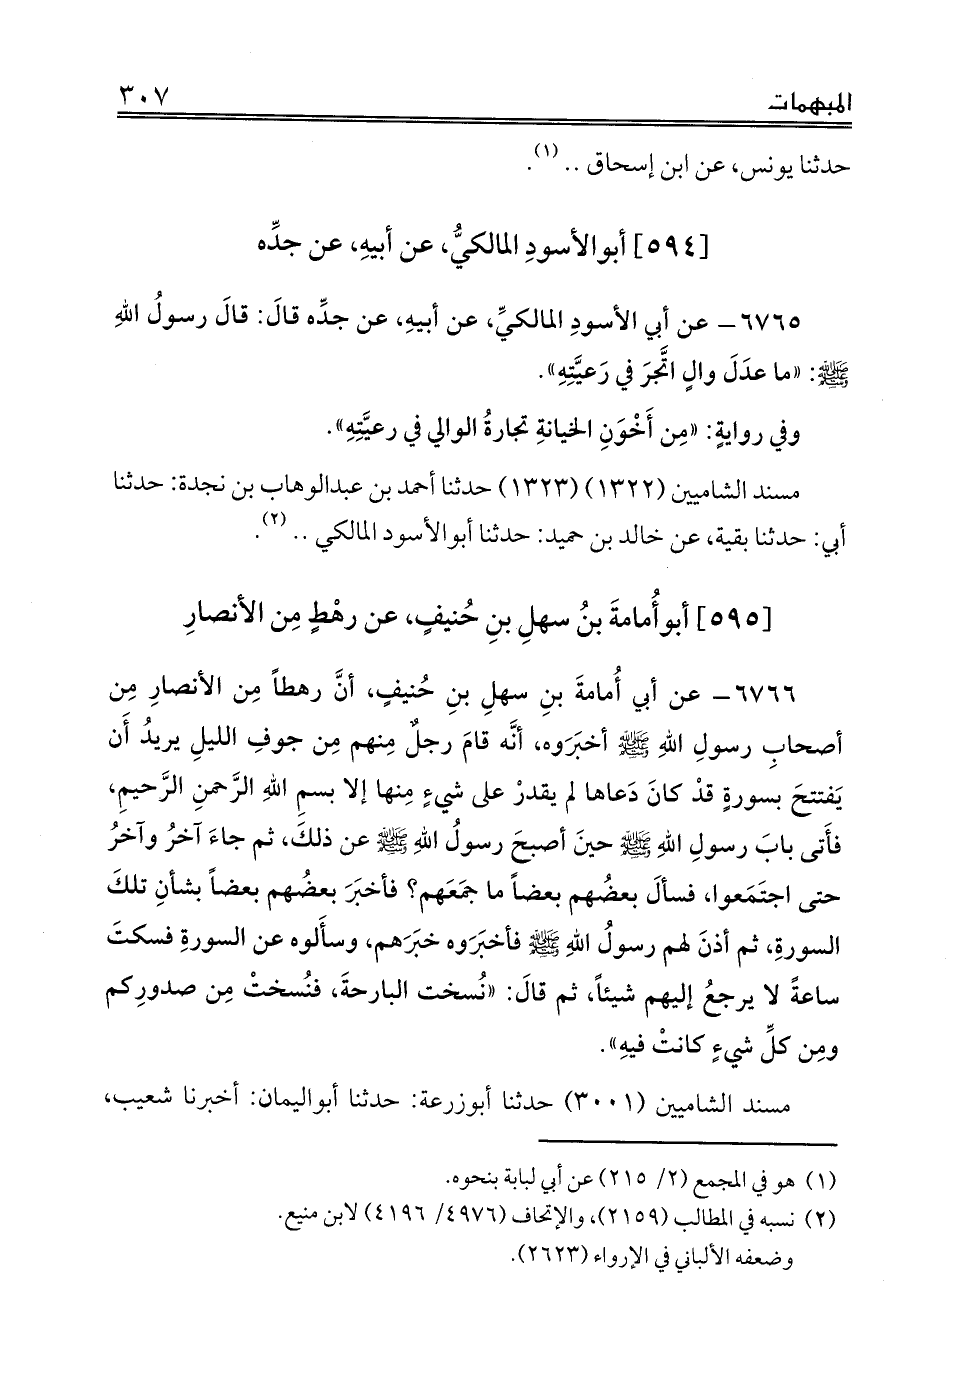 المبهمات ٣٠٧
حدثنا يونس، عن ابن إسحاق .. (١).
[٥٩٤] أبو الأسودِ المالكيُّ، عن أبيهِ، عن جدِّه
٦٧٦٥ – عن أبي الأسودِ المالكيِّ، عن أبيهِ، عن جدِّه قالَ: قالَ رسولُ اللهِ
ﷺ: «ما عدَلَ والٍ اتَّجرَ في رَعيَّتِهِ».
وفي روايةٍ: «مِن أَخْوَنِ الخيانةِ تجارةُ الوالي في رعيَّتِهِ».
مسند الشاميين (١٣٢٢) (١٣٢٣) حدثنا أحمد بن عبدالوهاب بن نجدة: حدثنا
أبي: حدثنا بقية، عن خالد بن حميد: حدثنا أبو الأسود المالكي .. (٢).
[٥٩٥] أبو أُمامةَ بنُ سهلِ بنِ حُنيفٍ، عن رهْطٍ مِن الأنصارِ
٦٧٦٦ – عن أبي أُمامةَ بنِ سهلِ بنِ حُنيفٍ، أنَّ رهطاً مِن الأنصارِ مِن
أصحابِ رسولِ اللهِ ﷺ أخبَروه، أنَّه قامَ رجلٌ مِنهم مِن جوفِ الليلِ يريدُ أَن
يَفتتحَ بسورةٍ قدْ كانَ دَعاها لم يقدرْ على شيءٍ مِنها إلا بسمِ اللهِ الرَّحمنِ الرَّحيمِ،
فأتى بابَ رسولِ اللهِ ﷺ حينَ أصبحَ رسولُ اللهِ ﷺ عن ذلكَ، ثم جاءَ آخرُ وآخرُ
حتى اجتَمَعوا، فسألَ بعضُهم بعضاً ما جمَعَهم؟ فأخبَرَ بعضُهم بعضاً بشأنِ تلكَ
السورةِ، ثم أذنَ لهم رسولُ اللهِ ﷺ فأخبَروه خبَرَهم، وسأَلوه عن السورةِ فسكتَ
ساعةً لا يرجعُ إليهم شيئاً، ثم قالَ: «نُسخت البارحةَ، فنُسختْ مِن صدورِكم
ومِن كلِّ شيءٍ كانتْ فيهِ».
مسند الشاميين (٣٠٠١) حدثنا أبوزرعة: حدثنا أبواليمان: أخبرنا شعيب،
(١) هو في المجمع (٢/ ٢١٥) عن أبي لبابة بنحوه.
(٢) نسبه في المطالب (٢١٥٩)، والإتحاف (٤٩٧٦/ ٤١٩٦) لابن منيع.
وضعفه الألباني في الإرواء (٢٦٢٣).